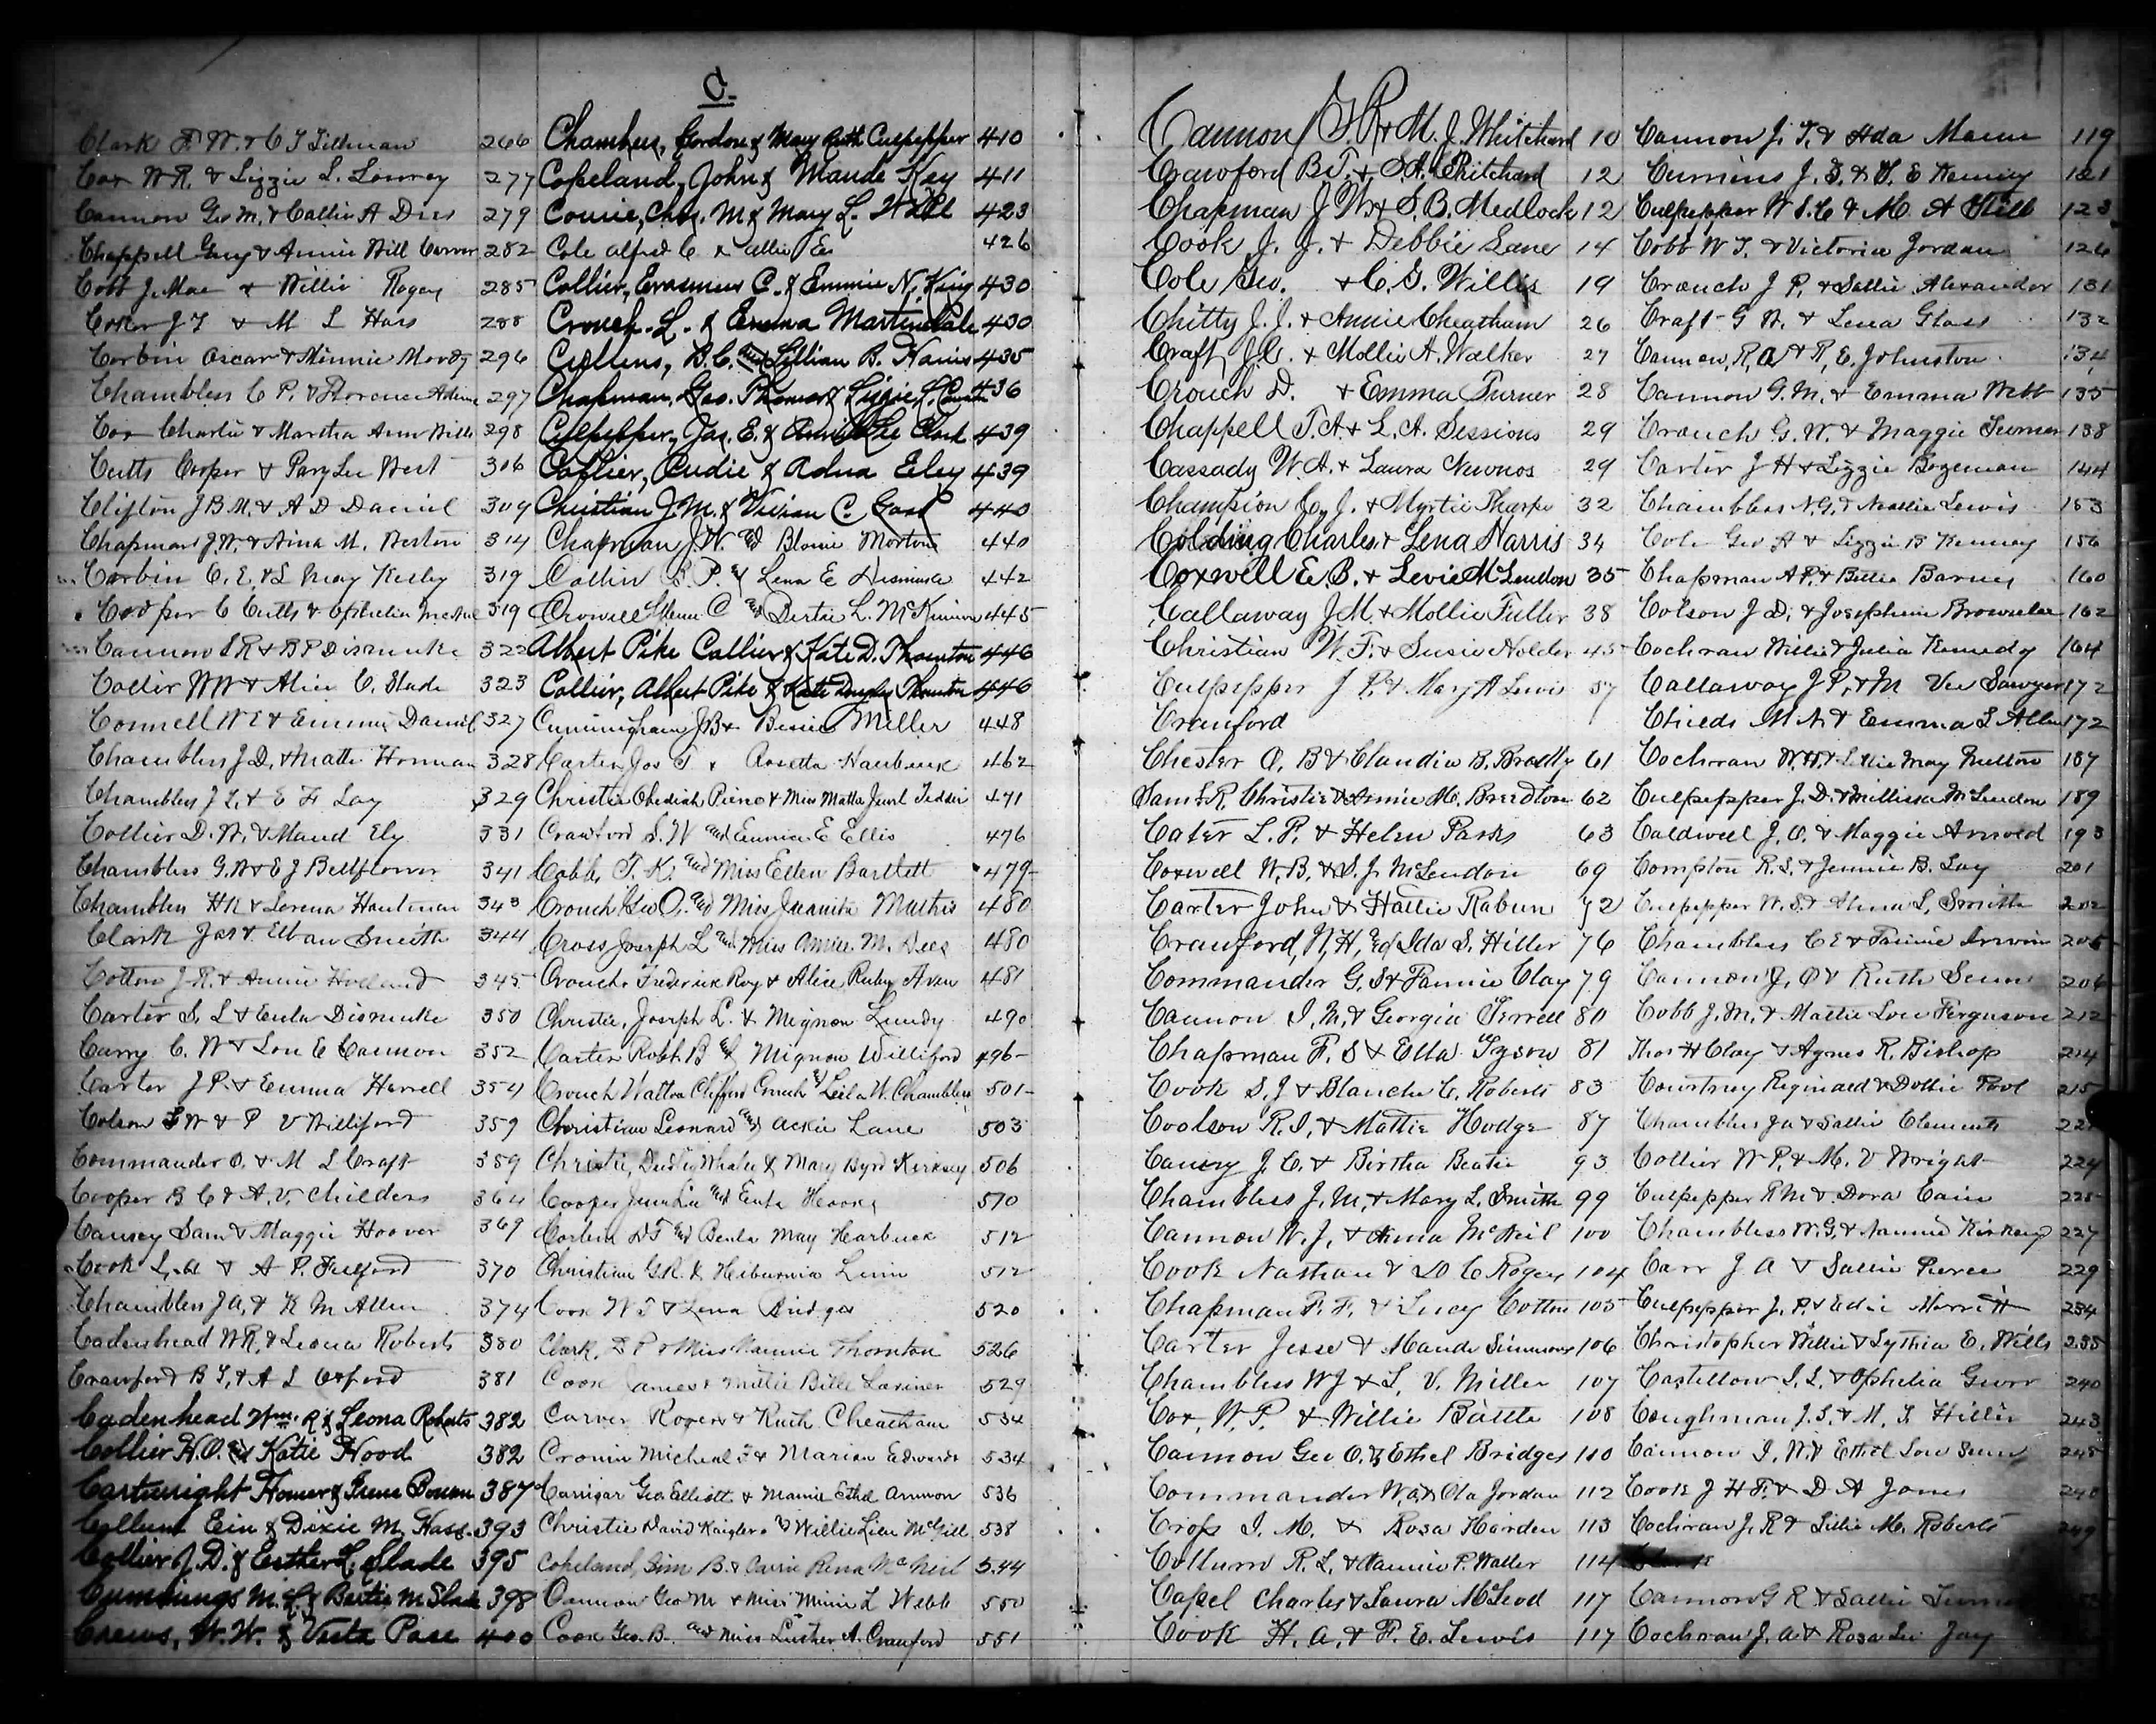 C.
Clark F. W. & C T Tillman 266
Cox W R. & Lizzie L. Lowrey 277
Cannon Geo M. & Callie A Dees 279
Chappell Guy & Annie Will 282
Cobb J. Mac & Willie Rogers 285
Coker J T & M L Hass 288
Corbin Oscar & Minnie Moody 296
Chambless C P. & Florence 297
Cox Charlie & Martha Ann Wills 298
Cutts Cooper & Pary Lee West 306
Clifton J B M. & A D Daniel 309
Chapman J. W. & Nina M. Weston 314
Corbin C. E. & L May Kersey 319
Cooper C Cutts & Ophelia 319
Cannon S R & B P Dismuke 322
Collier W W & Alice C. Slade 323
Connell W E & Emmie Daniel 327
Chambless J D. & Mattie Horman 328
Chambless J L. & E F Lay 329
Collier D. W. & Maud Ely 331
Chambless G. W & E J Bellflower 341
Chambless H R & Lorena Hartman 343
Clark Jas & Elban Smith 344
Cotton J. R. & Annie Holland 345
Carter S. L & Eula Dismuke 350
Curry C. W & Lou E Cannon 352
Carter J P. & Emma Harrell 354
Colson W & P V Williford 359
Commander O. & M L Craft 359
Cooper B C & A. V. Childers 364
Causey Sam & Maggie Hoover 369
Cook L. A & A P. Fulford 370
Chambless J A. & K M Allen 374
Cadenhead W R. & Leona Roberts 380
Crawford B T. & A L Oxford 381
Cadenhead Wm. R & Leona Roberts 382
Collier H. O. & Katie Wood 382
Cartwright Homer & Irene Bowen 387
Collum Ein & Dixie M. Hass 393
Collier J. D. & Esther L. Slade 395
Cummings M. L. & Bertie M Slade 398
Crews, W. W. & Vista Pace 400
Chambers, Gordon & Mary Ruth Culpepper 410
Copeland, John & Maude Key 411
Cowie, Chas. M & Mary L. Wall 423
Cole Alfred C & Allie E 426
Collier, Erasmus C. & Emmie N. King 430
Crouch L. & Emma Martindale 430
Collins, B. C. and Lillian B. Harris 435
Chapman, Geo. Thomas & Lizzie L. 436
Culpepper, Jas. E. & Annie Lee Clark 439
Collier, Pudie & Adna Eiley 439
Christian J. M. & Vivian C. Gass 440
Chapman J. W. and Blonie Morton 440
Collier B. P. & Lena E Dismuke 442
Crowell Glenn C and Dertie L. McKinnon 445
Albert Pike Collier & Kate D. Thornton 446
Collier, Albert Pike & Kate Douglas Thornton 446
Cunningham J B & Bessie Miller 448
Carter Jos T & Rosetta Harbuck 462
Christie Obediah Pierno & Miss Mattie Jewel Tedder 471
Crawford S. W and Eunice E Ellis 476
Cobb, T. K. and Miss Ellen Bartlett 479
Crouch Geo O. and Miss Juanita Mathis 480
Cross Joseph L and Miss Annie M. Dees 480
Crouch Frederick Roy & Alice Ruby Aven 481
Christie, Joseph L. & Mignon Lundy 490
Carter Robt. B & Mignon Williford 496
Crouch Walton Clifford Crouch & Leila W. Chambless 501
Christian Leonard and Ackie Lane 503
Christie, Dudley Whaler & Mary Byrd Kirksey 506
Cooper June Lee and Eula Hooks 510
Corbin D T and Beula May Harbuck 512
Christian G. R. & Hibernia Lunn 512
Cook W T & Lena Bridges 520
Clark, D P & Miss Nannie Thornton 526
Cook James & Mittie Bille Lasiner 529
Carver Rogers & Ruth Cheatham 534
Cronin Micheal F & Marian Edwards 534
Carrigar Geo Elliott & Mamie Ethel Ammon 536
Christie David Kaigler and Willie Lisle McGill 538
Copeland, Sim B. & Carrie Rena McNeil 544
Cannon Geo M & Miss Minnie L Webb 550
Cook Geo. B. and Miss Luther A. Crawford 551
Cannon S. R & M. J. Whitchard 10
Crawford B T. & S. A. Pritchard 12
Chapman J W. & S. B. Medlock 12
Cook J. J. & Debbie Lane 14
Cole Geo. & C. G. Willis 19
Chitty J. J. & Annie Cheatham 26
Craft J. C. & Mollie A. Walker 27
Crouch D. & Emma Turner 28
Chappell T. A. & L. A. Sessions 29
Cassady W. A. & Laura Nuwnos 29
Champion C. J. & Myrtie Tharpe 32
Colding Charles & Lena Harris 34
Coxwell E. B. & Levie McLendon 35
Callaway J. M. & Mollie Fuller 38
Christian W. T. & Susie Holder 45
Culpepper J P. & Mary A Lewis 57
Crawford
Chester O. B & Claudia B. Bradley 61
Saml R Christie & Annie M. Breedlove 62
Cater L. P. & Helen Parks 63
Coxwell W. B. & S. J. McLendon 69
Carter John & Hattie Rabun 72
Crawford, N, H, and Ida S. Hiller 76
Commander G. S & Fannie Clay 79
Cannon I. M. & Georgia Terrell 80
Chapman F. S & Ella Tyson 81
Cook S. J & Blanche C. Roberts 83
Coolson R. I. & Mattie Hodge 87
Causey J. C. & Birtha Beatie 93
Chambless J. M. & Mary L. Smith 99
Cannon W. J. & Anna McNeil 100
Cook Nathan & D C Rogers 104
Chapman F. F. & Lucy Cotton 105
Carter Jesse & Maude Simmons 106
Chambless W J & L. V. Miller 107
Cox, W. P. & Willie Battle 108
Cannon Geo O. & Ethel Bridges 110
Commander W. A & Ola Jordan 112
Crops I. M. & Rosa Harden 113
Collum R. L. & Nannie P. Waller 114
Capel Charles & Laura McLeod 117
Cook H. A. & F. E. Lewis 117
Cannon J. T. & Ada Mann 119
Cumins J. S. & S. E Kenney 121
Culpepper W S. C & M. A Still 123
Cobb W T. & Victoria Jordan 126
Crouch J P. & Sallie Alexander 131
Craft G W. & Lena Glass 132
Cannon, R, A & R, E. Johnston 134
Cannon G. M. & Emma Webb 135
Crouch G. W. & Maggie Turner 138
Carter J H & Lizzie Bozeman 144
Chambless N. G. & Mollie Lewis 153
Cole Geo A & Lizzie B Kenney 156
Chapman A P. & Bettie Barnes 160
Colson J D. & Josephine Brownlee 162
Cochran Willie & Julia Kennedy 164
Callaway J P. & M Vee Sawyer 172
Childs M. N. & Emma L Allen 172
Cochran W. H. & Lillie May Melton 187
Culpepper J. D. & Millissa McLendon 189
Caldwell J. O. & Maggie Arnold 193
Compton R. L. & Jennie B. Lay 201
Culpepper W. S. & Anna L. Smith 202
Chambless C E & Fannie Irwin 205
Cannon J. O & Ruth Senn 206
Cobb J. M. & Mattie Lou Ferguson 212
Thos H Clay & Agnes R. Bishop 214
Courtney Reginald & Dollie Pool 215
Chambless Ja & Sallie Clements
Collier W P. & M. V Wright 224
Culpepper R M & Dora Cain 225
Chambless W. G. & Nannie Kirksey 227
Carr J A & Sallie Pierce 229
Culpepper J. P. & Edie Merritt 234
Christopher Willie & Lythia E. Wills 235
Castellow I. L. & Ophelia Geurr 240
Coughman J. S. & M. I. Hiller 243
Cannon I. W. & Ethel Lou Senn 245
Cook J H F. & D A Jones 248
Cochran J. R & Lillie M. Roberts 249
Cannon G R & Sallie
Cochran J. A & Rosa Lee Jay